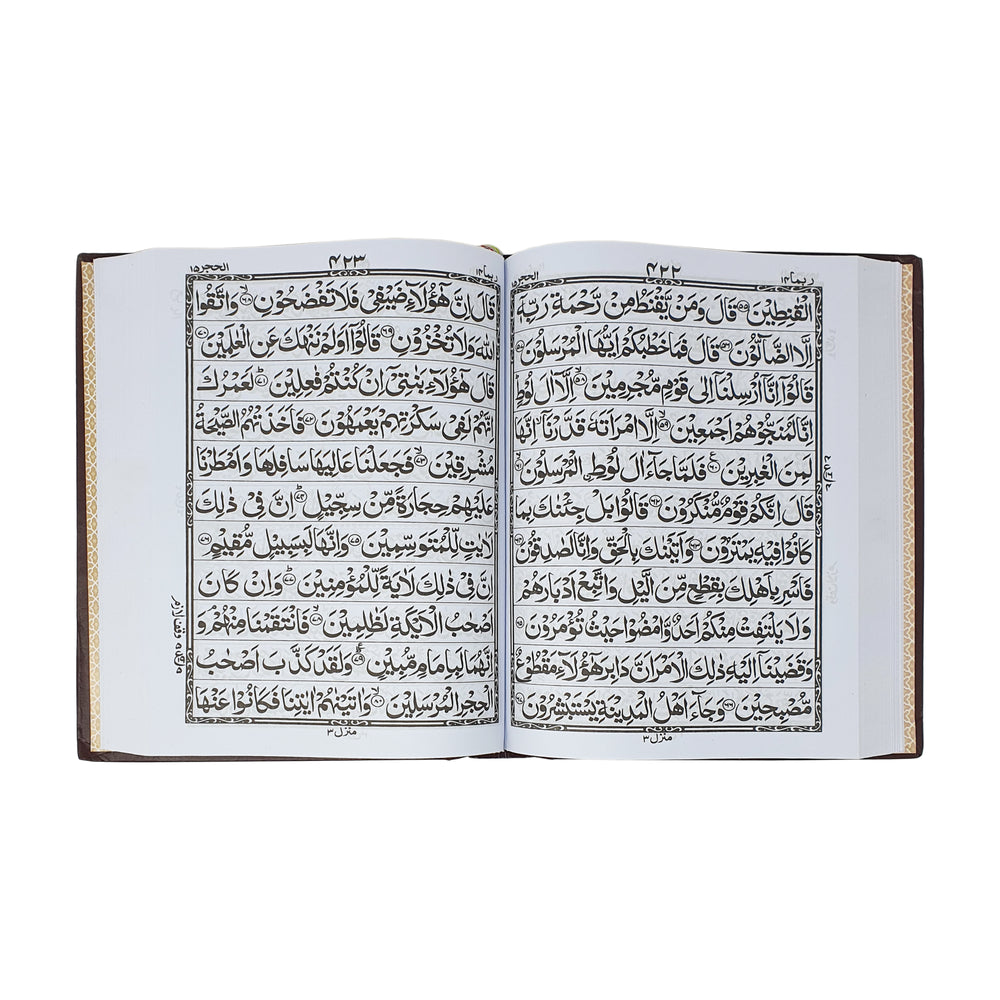 ربما ۱۴
۴۲۲
الحجر ۱۵
الْقٰنِطِیْنَ ﴿۵۵﴾ قَالَ وَمَنْ یَّقْنَطُ مِنْ رَّحْمَةِ رَبِّهٖۤ
اِلَّا الضَّآلُّوْنَ ﴿۵۶﴾ قَالَ فَمَا خَطْبُكُمْ اَیُّهَا الْمُرْسَلُوْنَ ﴿۵۷﴾
قَالُوْۤا اِنَّاۤ اُرْسِلْنَاۤ اِلٰی قَوْمٍ مُّجْرِمِیْنَ ﴿۵۸﴾ اِلَّاۤ اٰلَ لُوْطٍ ؕ
اِنَّا لَمُنَجُّوْهُمْ اَجْمَعِیْنَ ﴿۵۹﴾ اِلَّا امْرَاَتَهٗ قَدَّرْنَاۤ ۙ اِنَّهَا
لَمِنَ الْغٰبِرِیْنَ ﴿۶۰﴾ فَلَمَّا جَآءَ اٰلَ لُوْطِ ِۨالْمُرْسَلُوْنَ ﴿۶۱﴾
قَالَ اِنَّكُمْ قَوْمٌ مُّنْكَرُوْنَ ﴿۶۲﴾ قَالُوْا بَلْ جِئْنٰكَ بِمَا
كَانُوْا فِیْهِ یَمْتَرُوْنَ ﴿۶۳﴾ وَاَتَیْنٰكَ بِالْحَقِّ وَاِنَّا لَصٰدِقُوْنَ ﴿۶۴﴾
فَاَسْرِ بِاَهْلِكَ بِقِطْعٍ مِّنَ الَّیْلِ وَاتَّبِعْ اَدْبَارَهُمْ
وَلَا یَلْتَفِتْ مِنْكُمْ اَحَدٌ وَّامْضُوْا حَیْثُ تُؤْمَرُوْنَ ﴿۶۵﴾
وَقَضَیْنَاۤ اِلَیْهِ ذٰلِكَ الْاَمْرَ اَنَّ دَابِرَ هٰۤؤُلَآءِ مَقْطُوْعٌ
مُّصْبِحِیْنَ ﴿۶۶﴾ وَجَآءَ اَهْلُ الْمَدِیْنَةِ یَسْتَبْشِرُوْنَ ﴿۶۷﴾
منزل ۳
ربما ۱۴
۴۲۳
الحجر ۱۵
قَالَ اِنَّ هٰۤؤُلَآءِ ضَیْفِیْ فَلَا تَفْضَحُوْنِ ﴿۶۸﴾ وَاتَّقُوا
اللّٰهَ وَلَا تُخْزُوْنِ ﴿۶۹﴾ قَالُوْۤا اَوَلَمْ نَنْهَكَ عَنِ الْعٰلَمِیْنَ ﴿۷۰﴾
قَالَ هٰۤؤُلَآءِ بَنٰتِیْۤ اِنْ كُنْتُمْ فٰعِلِیْنَ ﴿۷۱﴾ لَعَمْرُكَ
اِنَّهُمْ لَفِیْ سَكْرَتِهِمْ یَعْمَهُوْنَ ﴿۷۲﴾ فَاَخَذَتْهُمُ الصَّیْحَةُ
مُشْرِقِیْنَ ﴿۷۳﴾ فَجَعَلْنَا عَالِیَهَا سَافِلَهَا وَاَمْطَرْنَا
عَلَیْهِمْ حِجَارَةً مِّنْ سِجِّیْلٍ ﴿۷۴﴾ اِنَّ فِیْ ذٰلِكَ
لَاٰیٰتٍ لِّلْمُتَوَسِّمِیْنَ ﴿۷۵﴾ وَاِنَّهَا لَبِسَبِیْلٍ مُّقِیْمٍ ﴿۷۶﴾
اِنَّ فِیْ ذٰلِكَ لَاٰیَةً لِّلْمُؤْمِنِیْنَ ﴿۷۷﴾ وَاِنْ كَانَ
اَصْحٰبُ الْاَیْكَةِ لَظٰلِمِیْنَ ﴿۷۸﴾ فَانْتَقَمْنَا مِنْهُمْ ۘ وَ
اِنَّهُمَا لَبِاِمَامٍ مُّبِیْنٍ ﴿۷۹﴾ وَلَقَدْ كَذَّبَ اَصْحٰبُ
الْحِجْرِ الْمُرْسَلِیْنَ ﴿۸۰﴾ وَاٰتَیْنٰهُمْ اٰیٰتِنَا فَكَانُوْا عَنْهَا
وقف لازم
منزل ۳